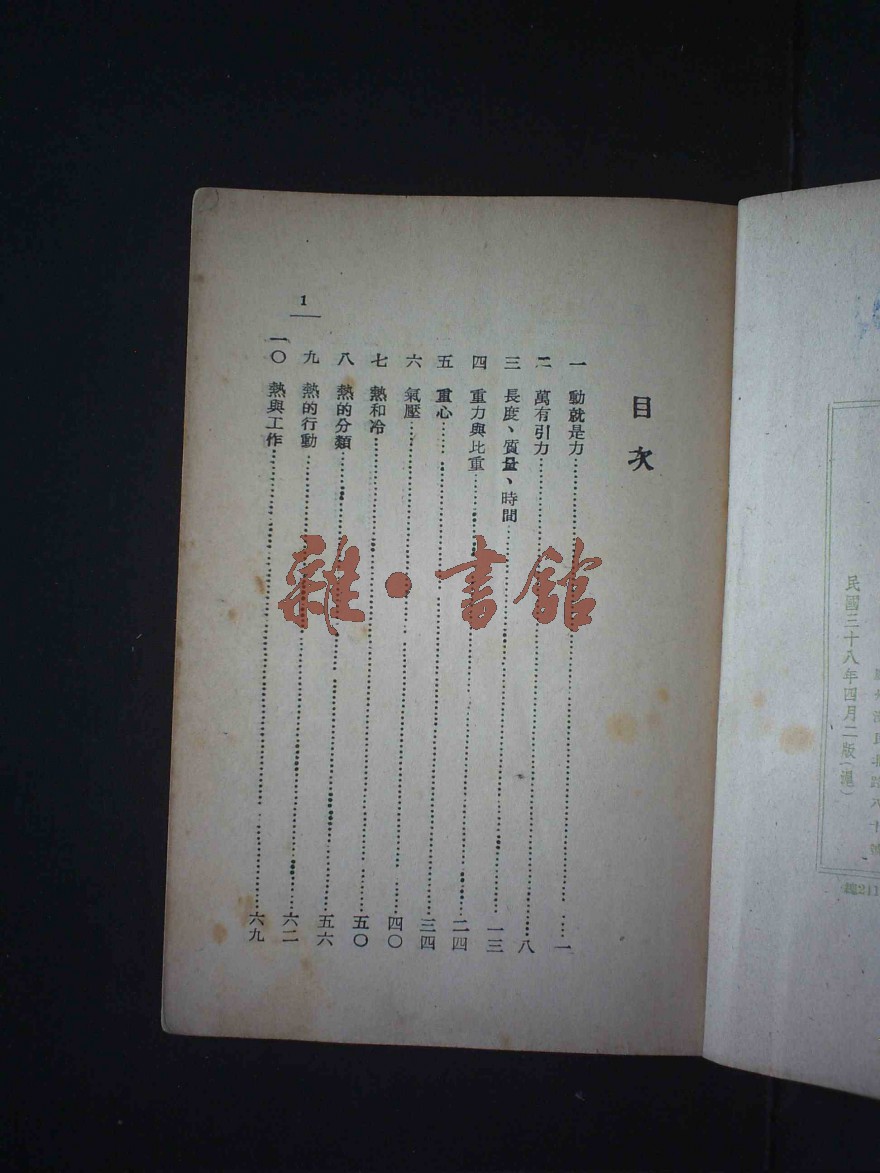 民國三十八年四月二版(滬)
目次
一 動就是力……一
二 萬有引力……八
三 長度、質量、時間……一三
四 重力與比重……二四
五 重心……三四
六 氣壓……四〇
七 熱和冷……五〇
八 熱的分類……五六
九 熱的行動……六二
一〇 熱與工作……六九
1
雜·書館